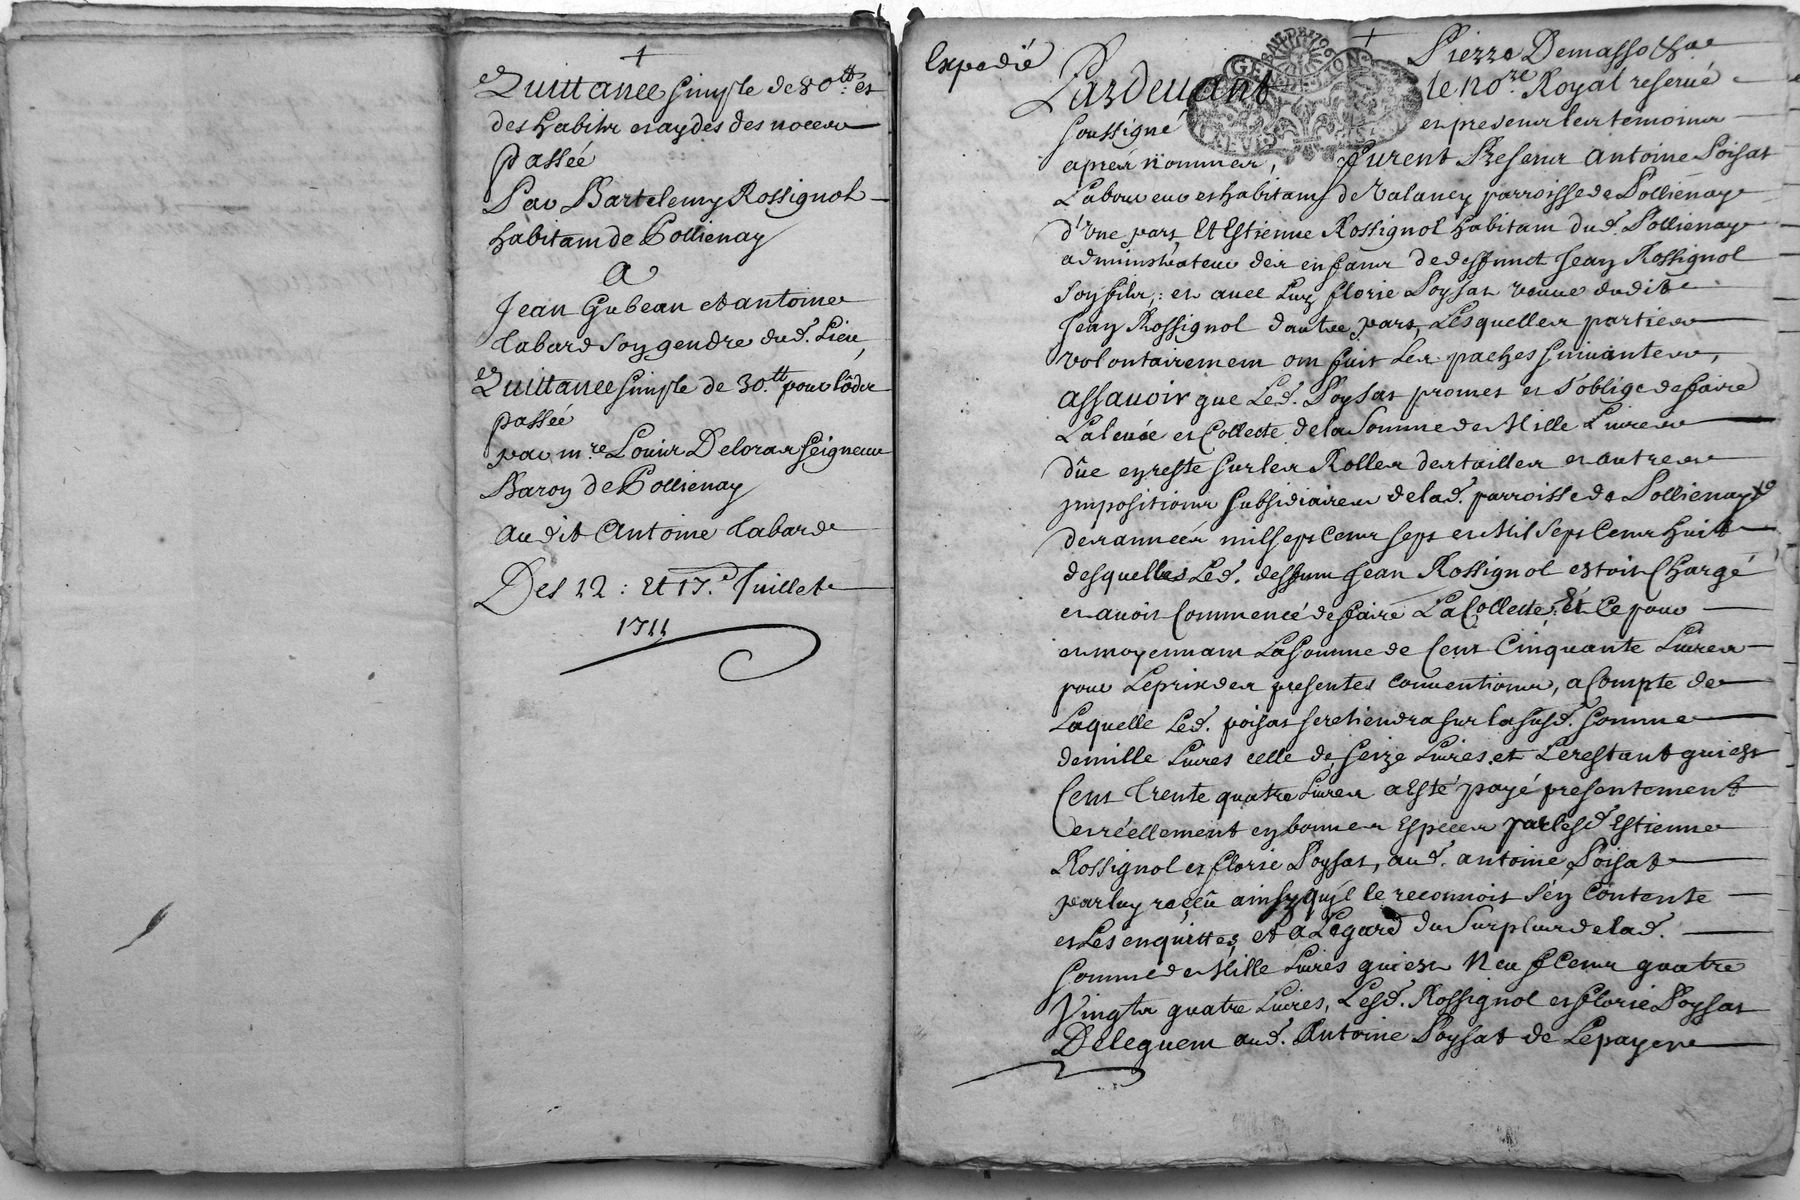 +
Quittance simple de 80.tt et
des habits et aydes des noces
passée
Par Bartelemy Rossignol
habitant de Pollienay
A
Jean Gubean et antoine
labarde son gendre dud. Lieu
Quittance simple de 30.tt pour lôds
passée
par m.re Louis Deloras seigneur
Baron de Pollienay
audit Antoine labarde
Des 12 : Et 17.e Juillet
1711
Expedié
+
Pierre Demasso
Pardevant le no.re Royal reservé
soussigné et presens les temoins
aprés nommes, furent Presens antoine Poisat
Laboureur et habitant de Valancy parroisse de Pollienay
d'Vne part, Et Estienne Rossignol habitant dud. Pollienay
administrateur des enfans de deffunct Jean Rossignol
son fils, et avec luy florie Poysat veuve dudit
Jean Rossignol dautre part, Lesquelles parties
volontairement ont fait Les paches suivantes,
assavoir que Led. Poysat promet et s'oblige de faire
La levée et Collecte de la somme de Mille Livres
düe en reste sur les Rolles des tailles et autres
impositions subsidiaires de lad. parroisse de Pollienay
des années mil sept Cens sept et Mil sept Cens huit
desquelles Led. deffunt Jean Rossignol estoit Chargé
et avoit Commencé de faire La Collecte, Et Ce pour
et moyennant La somme de Cent Cinquante Livres
pour Le prix des presentes conventions, a Compte de
Laquelle Led. poisat se retiendra sur la susd. somme
de mille Livres celle de seize Livres, et Le restant qui est
Cent Trente quatre Livres a Esté payé presentement
et réellement en bonnes Especes par lesd Estienne
Rossignol et florie Poysat, aud. antoine Poisat
par luy reçeû ainsy qu'il le reconnoit s'en Contente
et Les en quitte, et a L'egard du surplus de lad.
somme de Mille Livres qui est Neuf Cens quatre
Vingts quatre Livres, Lesd. Rossignol et florie Poysat
Deleguent aud. Antoine Poysat de Le payer